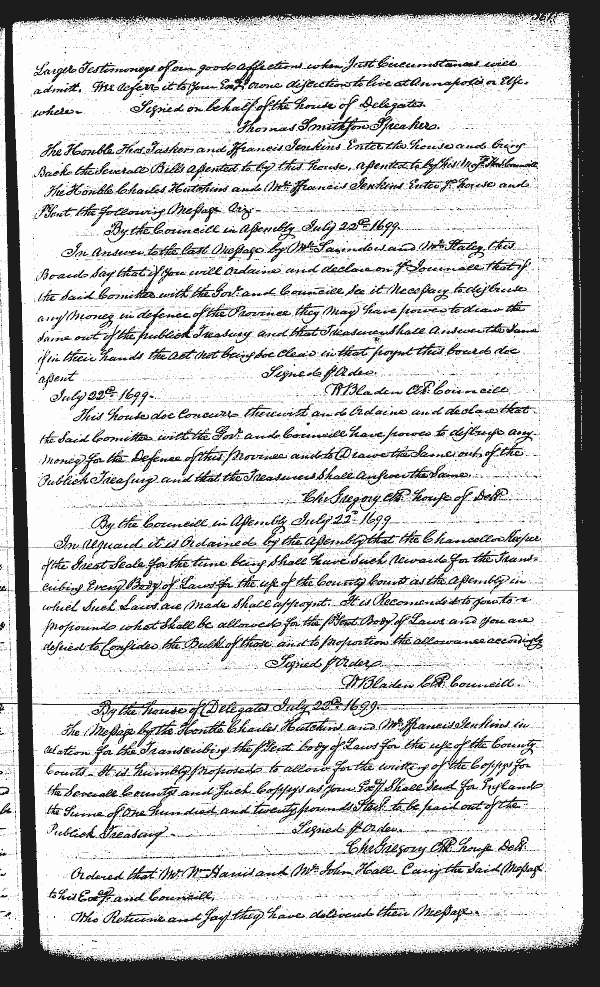 Larger Testimoneys of our good affections when Just Circumstances will
admitt. We referr it to your Exc.y owne discretion to live at Annapolis or Else-
where. Signed on behalf of the house of Delegates
Thomas Smithson Speaker.
The Honble Thos. Tasker and ffrancis Jenkins Enter the house and bring
Back the Severall Bills assented to by this house, assented to by his
The Honble Charles Hutchins and Mr. ffrancis Jenkins Enter ye. house and
P'sent the following Message Viz.
By the Councill in Assembly July 22d. 1699.
In Answer to the last Message by Mr. Saunders and Mr. Staley, this
Board Say that if you will Ordaine and declare on ye. Journall that if
the said Comittee with the Govr. and Councill See it Necessary to disburse
any Money in defence of the Province they May have power to draw the
same out of the publick Treasury and that Treasurer Shall Answer the same
if in their hands the act not being soe Clear in that poynt this board doe
assent Signed p Order
July 22d. 1699. W Bladen Clk. Councill
This house doe Concurr therewith and Ordaine and declare that
the Said Comittee with the Govr. and Councill have power to disburse any
Money for the Defence of this Province and to Draw the Same out of the
Publick Treasury and that the Treasurers Shall answer the Same.
Chr Gregory Clk house of Dell.
By the Councill in Assembly July 22d 1699
In reguard it is Ordained by the Assembly that the Chancellor Keeper
of the Great Seale for the time being Shall have Such Rewards for the Trans-
cribing Every Body of Laws for the use of the County Courts as the Assembly in
which Such Laws are Made Shall appoynt. It is Recomended to you to
propound what Shall be allowed for the p'sent Body of Laws and you are
desired to Consider the Bulk of those and to proportion the allowance accordingly
Signed p Order
W Bladen Clk. Councill.
By the house of Delegates July 22d. 1699.
The Message by the Honble Charles Hutchins and Mr. ffrancis Jenkins in
relation for the Transcribing the p'sent body of Laws for the use of the County
Courts. It is humbly proposed to allow for the writing of the Coppys for
the Severall Countys and Such Coppys as your Excy. Shall Send for England
the Sume of One hundred and twenty pounds Sterl. to be paid out of the
Publick Treasury. Signed p Order.
Chr Gregory Clk. house Dell.
Ordered that Mr. W. Harris and Mr. John Hall Carry the Said Message
to his Excy. and Councill.
Who Returne and Say they have delivered their Message.